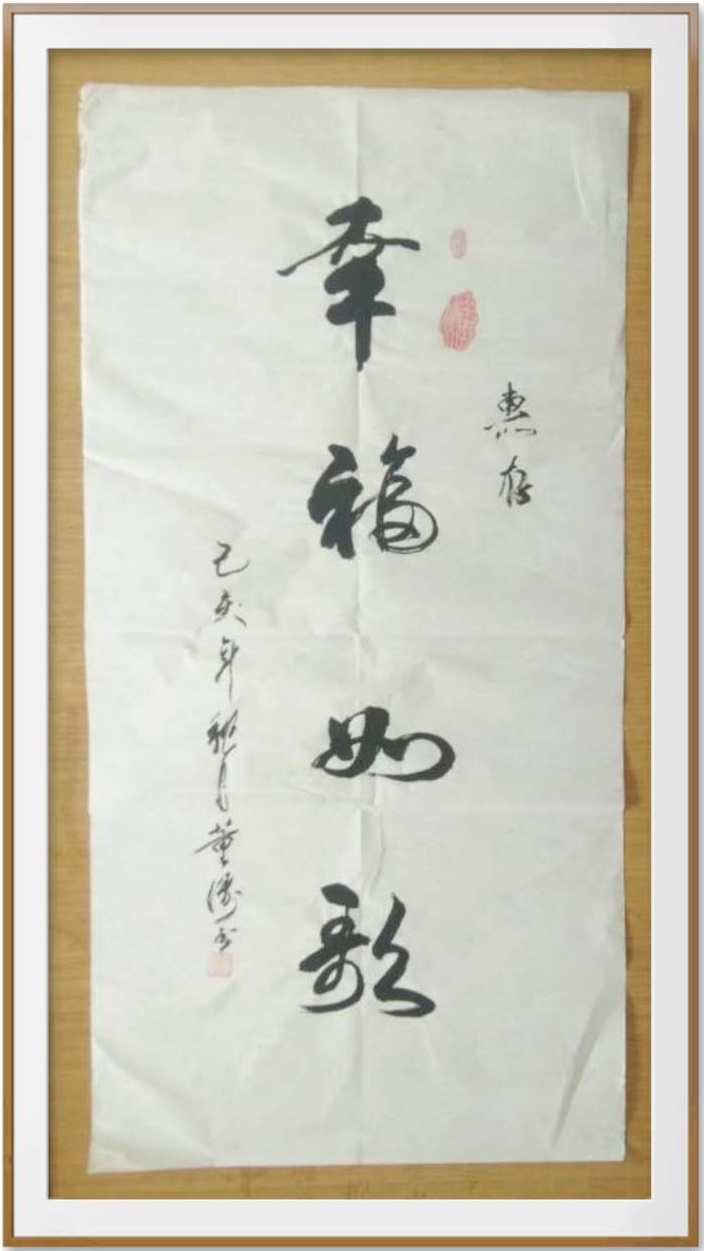 惠存
幸福如歌
己亥年秋月董濤书